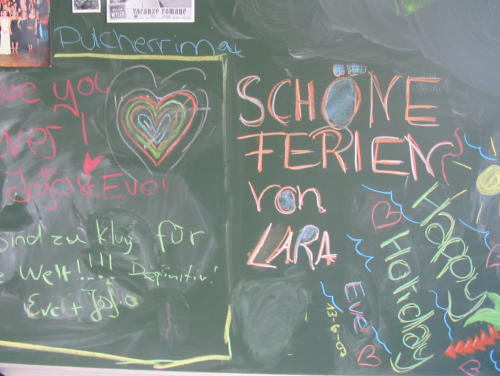 vacanze romane
Pulcherrima
you
Jojo & Eve
sind zu klug für
Welt!....!!! Definitiv!
Eve + Jojo
SCHÖNE
FERIEN
von
LARA
Happy
Holiday
Eve